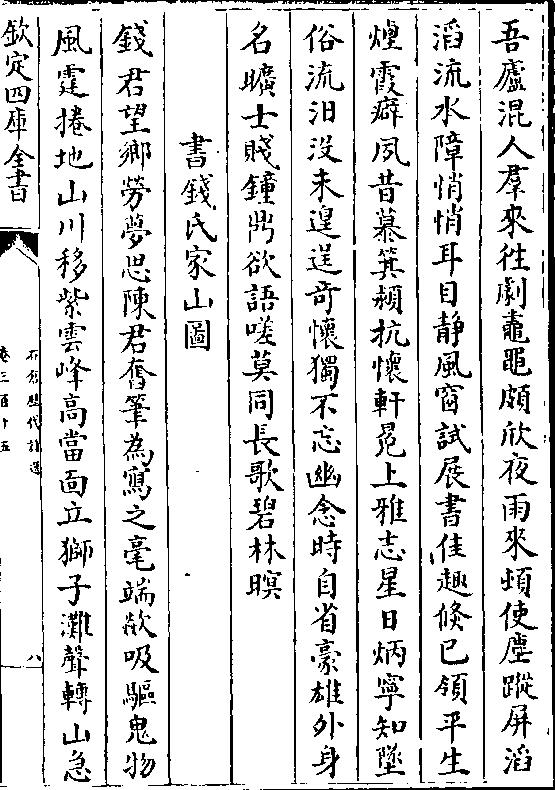 吾廬混人羣來徃劇鼃黽頗欣夜雨來頓使塵蹤屏滔
滔流水障悄悄耳目静風窗試展書佳趣倏已領平生
煙霞癖夙昔慕箕潁抗懷軒冕上雅志星日炳寧知墜
俗流汨没未遑逞竒懷獨不忘幽念時自省豪雄外身
名曠士賤鐘鼎欲語嗟莫同長歌碧林暝
書錢氏家山圖
錢君望鄉勞夢思陳君奮筆為寫之毫端歘吸驅鬼物
風霆捲地山川移紫雲峰高當面立獅子灘聲轉山急
欽定四庫全書
石倉歷代詩選
卷三百十五
八